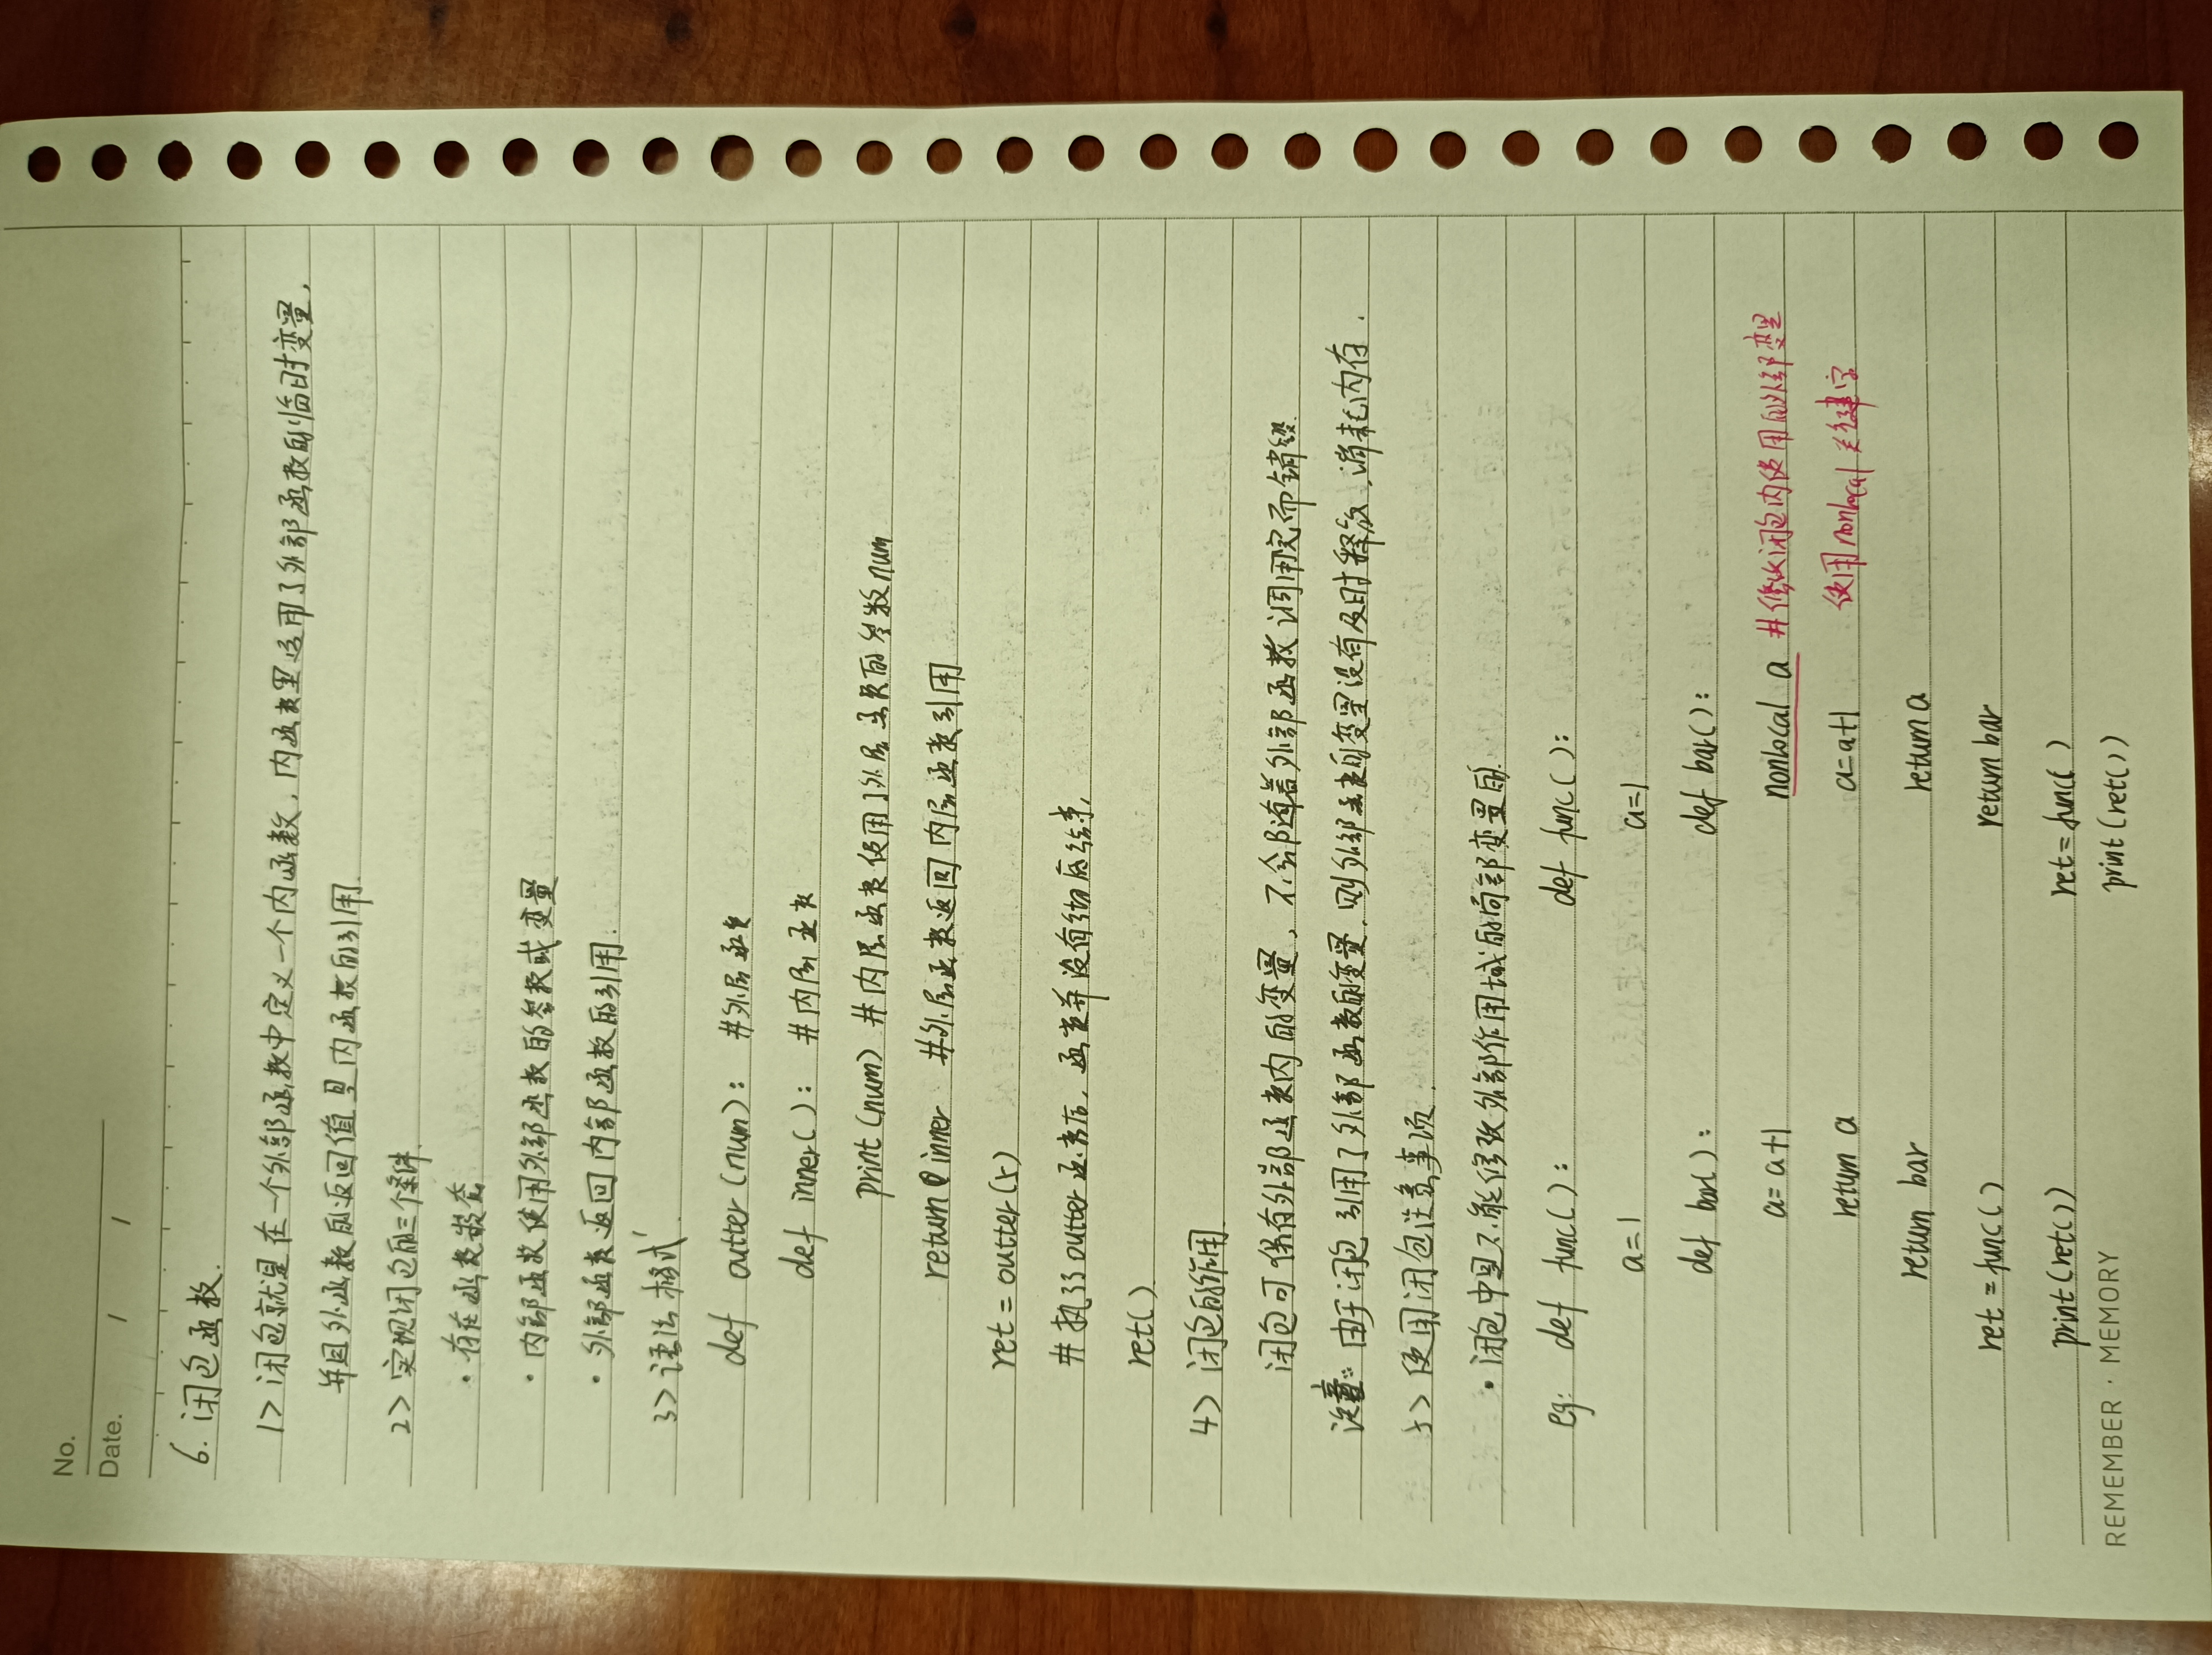 No.
Date. / /
6. 闭包函数.
1> 闭包就是在一个外部函数中定义一个内函数, 内函数里运用了外部函数的临时变量,
并且外函数的返回值是内函数的引用.
2> 实现闭包的三个条件.
· 存在函数嵌套
· 内部函数使用外部函数的参数或变量
· 外部函数返回内部函数的引用.
3> 语法格式
def outter(num): #外层函数
def inner(): #内层函数
print(num) #内层函数使用外层函数的参数num
return inner #外层函数返回内层函数引用
ret = outter(5)
# 执行了outter函数后, 函数并没有彻底结束,
ret()
4> 闭包的作用
闭包可保存外部函数内的变量, 不会随着外部函数调用完而销毁.
注意: 由于闭包引用了外部函数的变量, 则外部函数的变量没有及时释放, 消耗内存.
5> 使用闭包注意事项.
· 闭包中是不能修改外部作用域的局部变量的.
eg: def func(): def func():
a=1 a=1
def bar(): def bar():
a=a+1 nonlocal a #修改闭包内使用的外部变量
return a a=a+1 使用nonlocal关键字
return bar return a
ret = func() return bar
print(ret()) ret=func()
print(ret())
REMEMBER · MEMORY